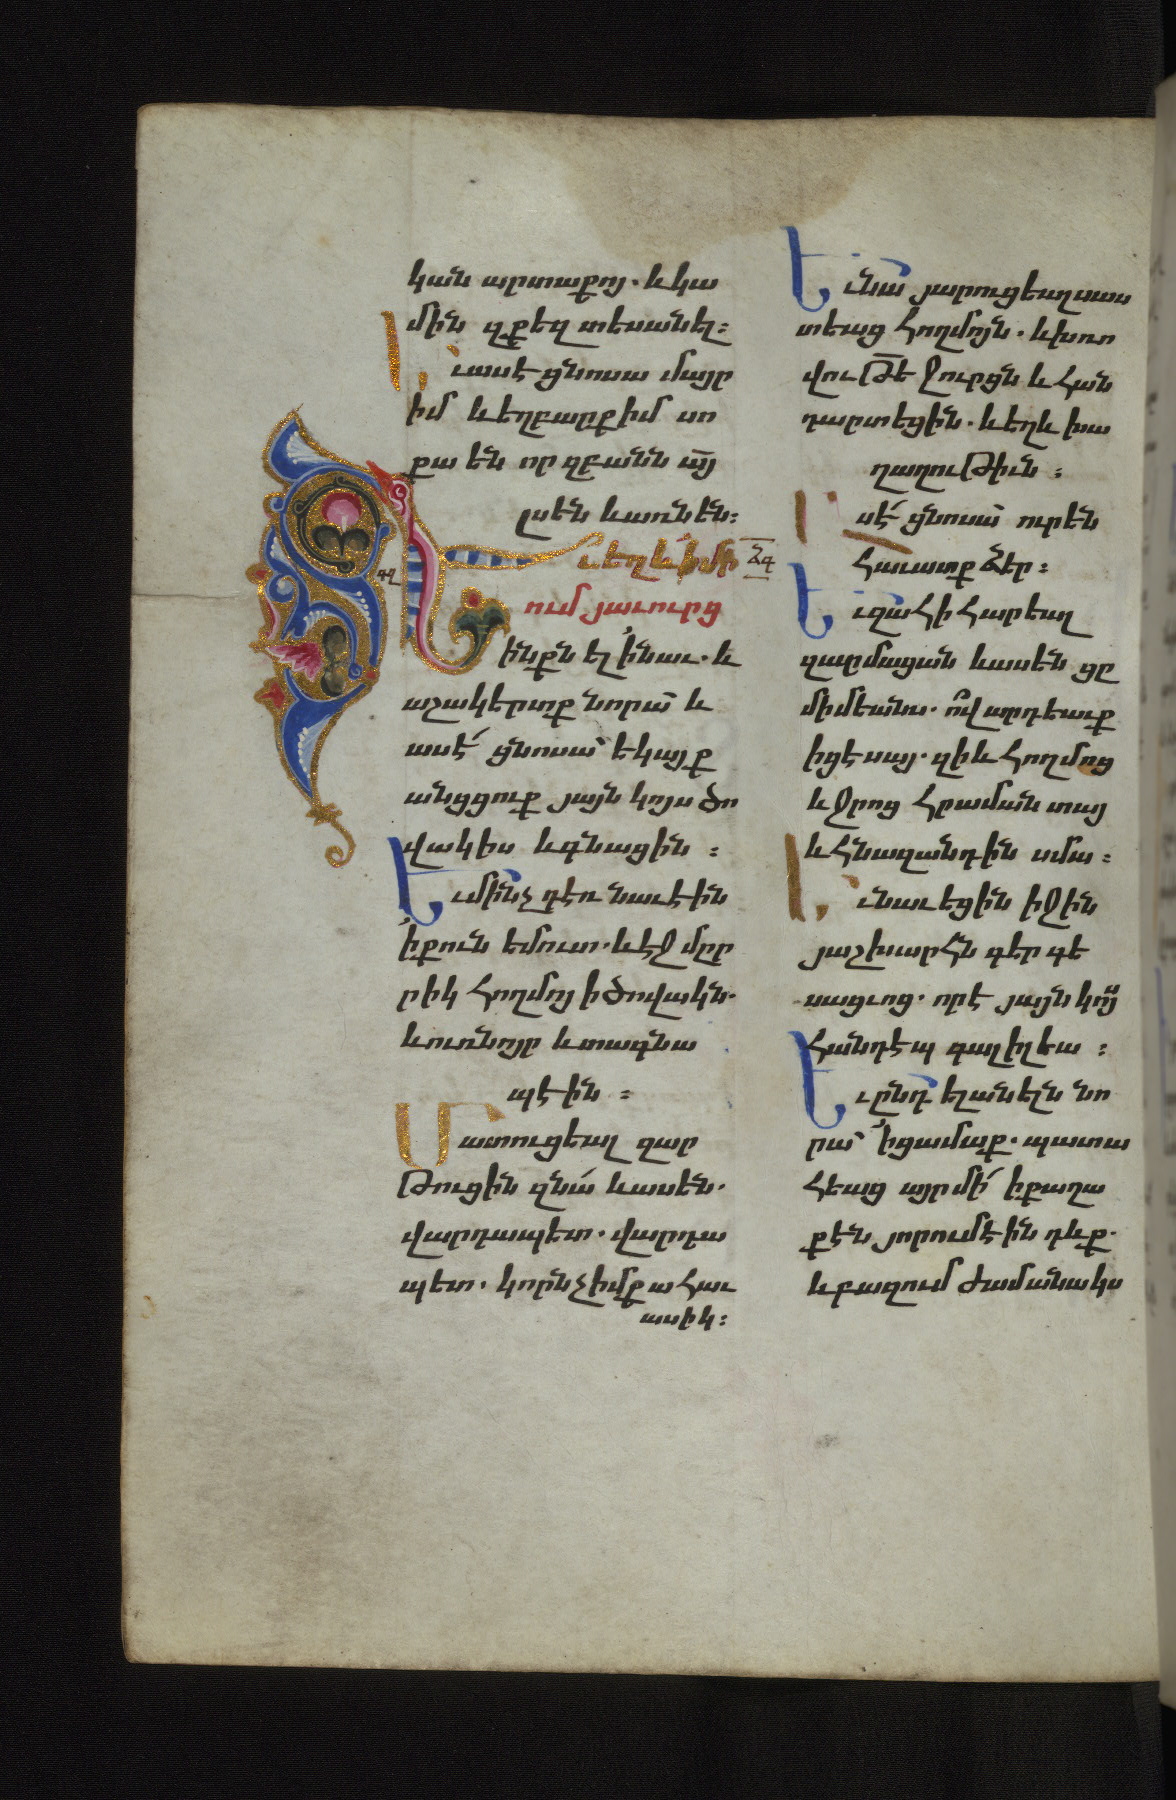 կան արտաքոյ. և կա
մին զքեզ տեսանել։
Եւ ասէ ցնոսա մայր
իմ և եղբարք իմ սո
քա են որ զբանն ա՟յ
լսեն և առնեն։
Եւ եղև ի մի ՃԳ
ում յաւուրց
ինքն ել ի նաւ. և
աշակերտք նորա և
ասէ՛ ցնոսա՝ եկայք
անցցուք յայն կոյս ծո
վակիս և գնացին ։
Եւ մինչ դեռ նաւէին
ի քուն եմուտ. և էջ մըր
րիկ հողմոյ ի ծովակն.
և ուռնոյր և տագնա
պէին ։
Մատուցեալ զար
թուցին զնա և ասեն.
վարդապետ. վարդա
պետ. կորնչիմք ահաւ
ասիկ։
Եւ նա յարուցեալ սաս
տեաց հողմոյն. և խռո
վութ՟ե ջուրցն և հան
դարտեցին. և եղև խա
ղաղութիւն ։
Ասէ՛ ցնոսա ուր են
հաւատք ձեր։
Եւ զահի հարեալ
զարմացան և ասեն ցը
միմեանս. ո՞վ արդեւք
իցէ սայ. զի և հողմոց
և ջրոց հրաման տայ
և հնազանդին սմա։
Եւ նաւեցին իջին
յաշխարհն գերգե
սացւոց. որ է յայն կոյս
հանդէպ գալիլեա ։
Եւ ընդ ելանելն նո
րա՝ ի ցամաք. պատա
հեաց այր մի՛ ի քաղա
քէն յորում էին դևք.
և բազում ժամանակս